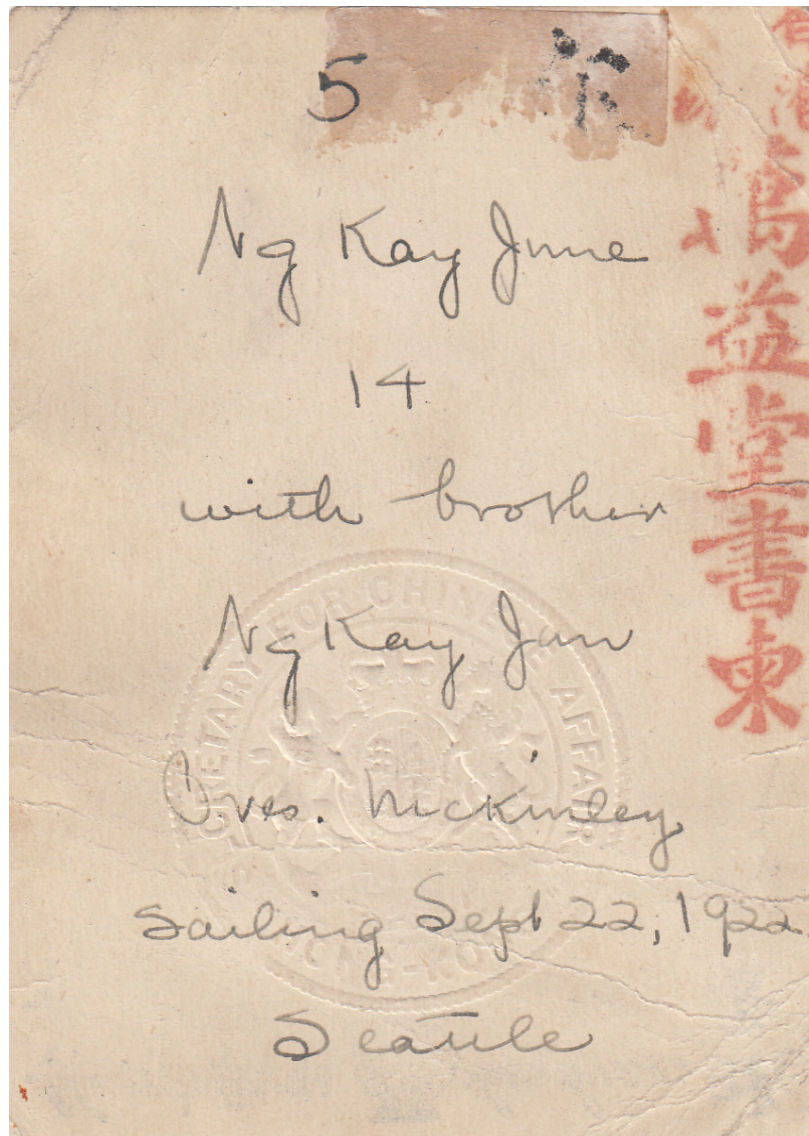 5
Ng Kay June
14
with brother
Ng Kay Jan
Pres. McKinley
Sailing Sept 22, 1922
Seattle
CRETARY FOR CHINESE AFFAIR
ONG-KO
益堂書柬